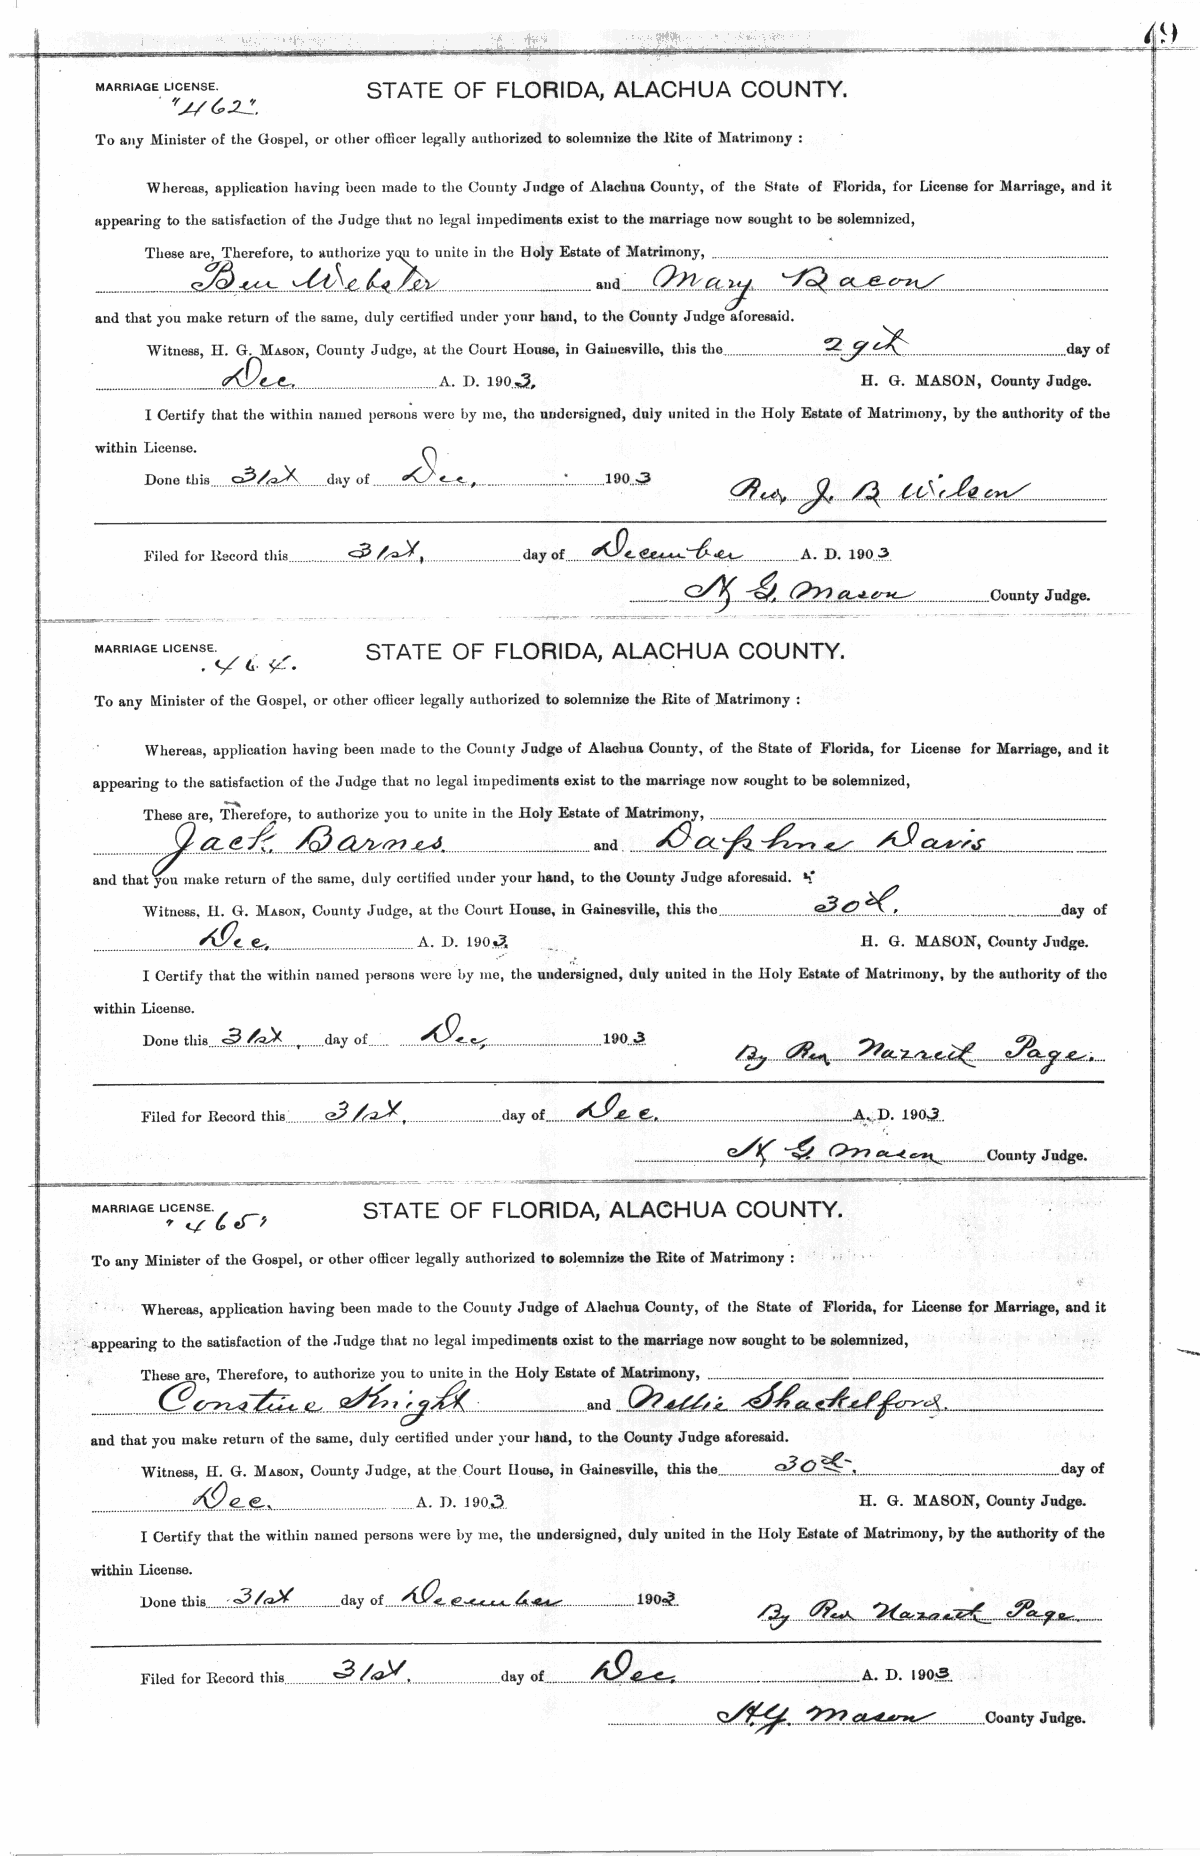 MARRIAGE LICENSE. STATE OF FLORIDA, ALACHUA COUNTY.
"462".
To any Minister of the Gospel, or other officer legally authorized to solemnize the Rite of Matrimony :
Whereas, application having been made to the County Judge of Alachua County, of the State of Florida, for License for Marriage, and it
appearing to the satisfaction of the Judge that no legal impediments exist to the marriage now sought to be solemnized,
These are, Therefore, to authorize you to unite in the Holy Estate of Matrimony,
Ben Webster and Mary Bacon
and that you make return of the same, duly certified under your hand, to the County Judge aforesaid.
Witness, H. G. MASON, County Judge, at the Court House, in Gainesville, this the 29th day of
Dec. A. D. 1903. H. G. MASON, County Judge.
I Certify that the within named persons were by me, the undersigned, duly united in the Holy Estate of Matrimony, by the authority of the
within License.
Done this 31st day of Dec, 1903
Rev, J. B Wilson
Filed for Record this 31st, day of December A. D. 1903
H G. Mason County Judge.
MARRIAGE LICENSE. STATE OF FLORIDA, ALACHUA COUNTY.
.464.
To any Minister of the Gospel, or other officer legally authorized to solemnize the Rite of Matrimony :
Whereas, application having been made to the County Judge of Alachua County, of the State of Florida, for License for Marriage, and it
appearing to the satisfaction of the Judge that no legal impediments exist to the marriage now sought to be solemnized,
These are, Therefore, to authorize you to unite in the Holy Estate of Matrimony,
Jack Barnes. and Daphne Davis
and that you make return of the same, duly certified under your hand, to the County Judge aforesaid.
Witness, H. G. MASON, County Judge, at the Court House, in Gainesville, this the 30th. day of
Dec. A. D. 1903. H. G. MASON, County Judge.
I Certify that the within named persons were by me, the undersigned, duly united in the Holy Estate of Matrimony, by the authority of the
within License.
Done this 31st, day of Dec, 1903
By Rev Page.
Filed for Record this 31st, day of Dec. A. D. 1903.
H G Mason County Judge.
MARRIAGE LICENSE. STATE OF FLORIDA, ALACHUA COUNTY.
"465"
To any Minister of the Gospel, or other officer legally authorized to solemnize the Rite of Matrimony :
Whereas, application having been made to the County Judge of Alachua County, of the State of Florida, for License for Marriage, and it
appearing to the satisfaction of the Judge that no legal impediments exist to the marriage now sought to be solemnized,
These are, Therefore, to authorize you to unite in the Holy Estate of Matrimony,
Constine Knight and Nellie Shackelford.
and that you make return of the same, duly certified under your hand, to the County Judge aforesaid.
Witness, H. G. MASON, County Judge, at the Court House, in Gainesville, this the 30th. day of
Dec. A. D. 1903 H. G. MASON, County Judge.
I Certify that the within named persons were by me, the undersigned, duly united in the Holy Estate of Matrimony, by the authority of the
within License.
Done this 31st day of December 1903
By Rev Page.
Filed for Record this 31st. day of Dec, A. D. 1903
H.G. Mason County Judge.